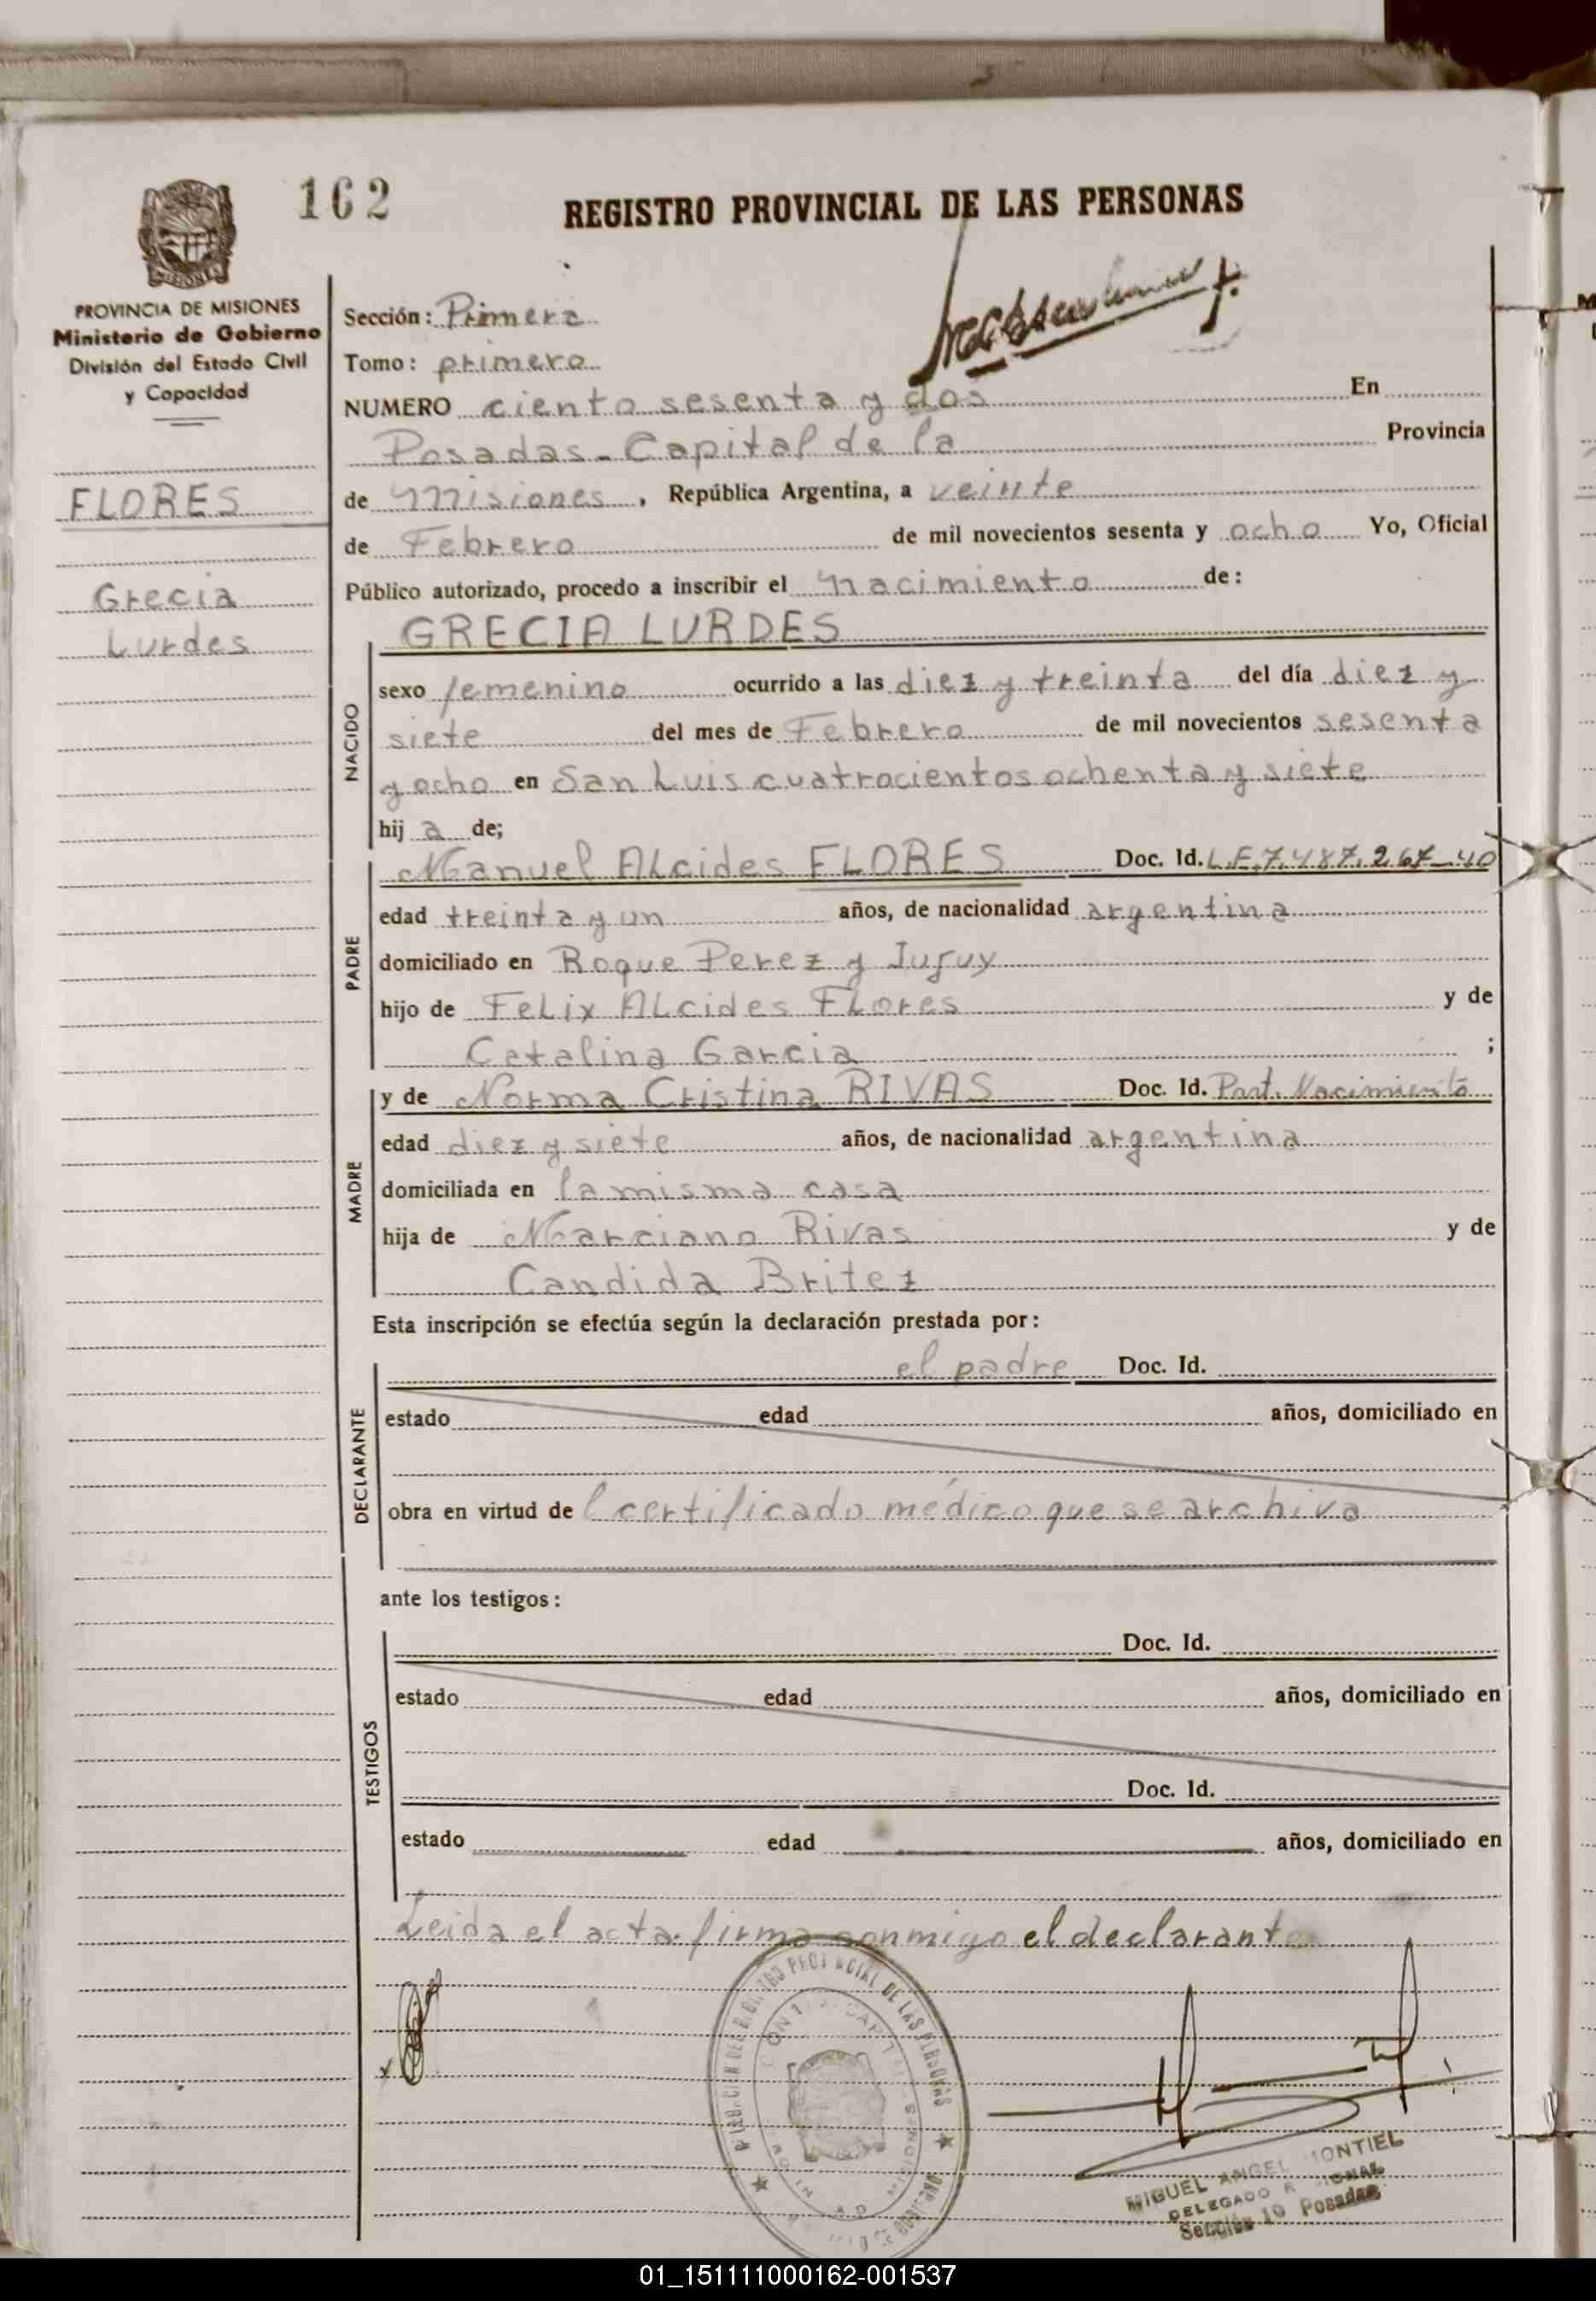 162
REGISTRO PROVINCIAL DE LAS PERSONAS
MISIONES
PROVINCIA DE MISIONES
Ministerio de Gobierno
División del Estado Civil
y Capacidad
FLORES
Grecia
Lurdes
Sección: Primera
Tomo: primero
NUMERO ciento sesenta y dos En
Posadas - Capital de la Provincia
de Misiones, República Argentina, a veinte
de Febrero de mil novecientos sesenta y ocho Yo, Oficial
Público autorizado, procedo a inscribir el nacimiento de:
NACIDO
GRECIA LURDES
sexo femenino ocurrido a las diez y treinta del día diez y
siete del mes de Febrero de mil novecientos sesenta
y ocho en San Luis cuatrocientos ochenta y siete
hij a de;
PADRE
Manuel Alcides FLORES Doc. Id. L.E. 7.487.267-40
edad treinta y un años, de nacionalidad argentina
domiciliado en Roque Perez y Jujuy
hijo de Felix Alcides Flores y de
Catalina Garcia ;
MADRE
y de Norma Cristina RIVAS Doc. Id. Part. Nacimiento
edad diez y siete años, de nacionalidad argentina
domiciliada en la misma casa
hija de Marciano Rivas y de
Candida Britez
Esta inscripción se efectúa según la declaración prestada por:
DECLARANTE
el padre Doc. Id.
estado edad años, domiciliado en
obra en virtud de l certificado médico que se archiva
ante los testigos:
TESTIGOS
Doc. Id.
estado edad años, domiciliado en
Doc. Id.
estado edad años, domiciliado en
Leida el acta firma conmigo el declarante
MIGUEL ANGEL MONTIEL
DELEGADO
Sección 1º Posadas
01_151111000162-001537